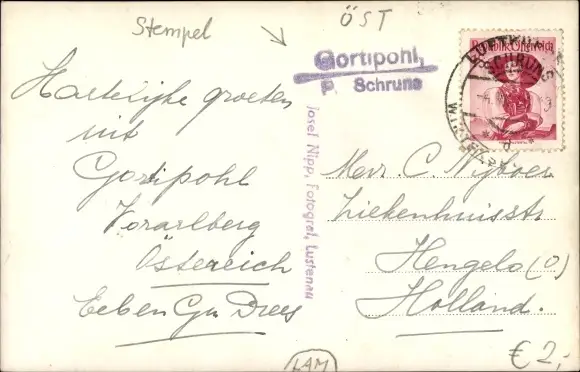 Stempel
ÖST
Gortipohl,
p. Schruns
Republik Österreich
LUFTKURORT
SCHRUNS
Hartelijke groeten
uit
Gortipohl
Vorarlberg
Österreich
Eeben Gn Drees
Josef Nipp, Fotograf, Lustenau
Mevr. C. Nijboer
Ziekenhuisstr
Hengelo (O)
Holland.
LAM
€ 2,-